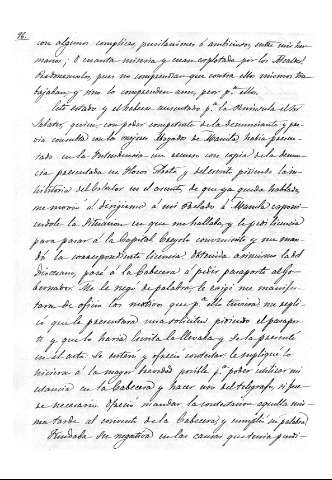 16.
con algunos complices, pusilanimes ó ambiciosos, entre mis her-
manos; O cuanta miseria y cuan explotada por los Reales
Redomeniales, pues no comprendian que contra ellos mismos tra-
bajaban y sino lo comprendian aun, peor p.ª ellos.
Este estado y el haberse ausentado p.ª la Peninsula el Sr.
Salazar, quien, con poder competente de la denunciante y pre-
via consulta con los mejores Abogados de Manila, habia presen-
tado en la Intendencia un recurso con copia de la denun-
cia presentada en Ilocos Norte, y del escrito pidiendo la in-
hibitoria del Calador en el asunto, de que ya queda hablado,
me movió á dirigirme á mi Prelado á Manila exponi-
endole la situacion en que me hallaba, y le pedí licencia
para pasar á la Capital. Creyólo conveniente y me man-
dó la correspondiente licencia. Obtenida asimismo la del
diocesano, pasé á la Cabecera á pedir pasaporte al Go-
bernador. Me lo negó de palabra; le exigí me manifes-
tara de oficio los motivos que p.ª ello tuviera: me repli-
có que le presentara una solicitud pidiendo el pasapor-
te y que lo haria. Escrita la llevaba y se la presenté
en el acto. Se sentó y ofreció contestar: le supliqué lo
hiciera á la mayor brevedad posible p.ª poder utilizar mi
estancia en la Cabecera y hacer uso del telégrafo, si fue-
se necesario. Ofreció mandar la contestacion aquella mis-
ma tarde al convento de la Cabecera, y cumplió su palabra.
Fundaba su negativa en las causas que tenia pendi-